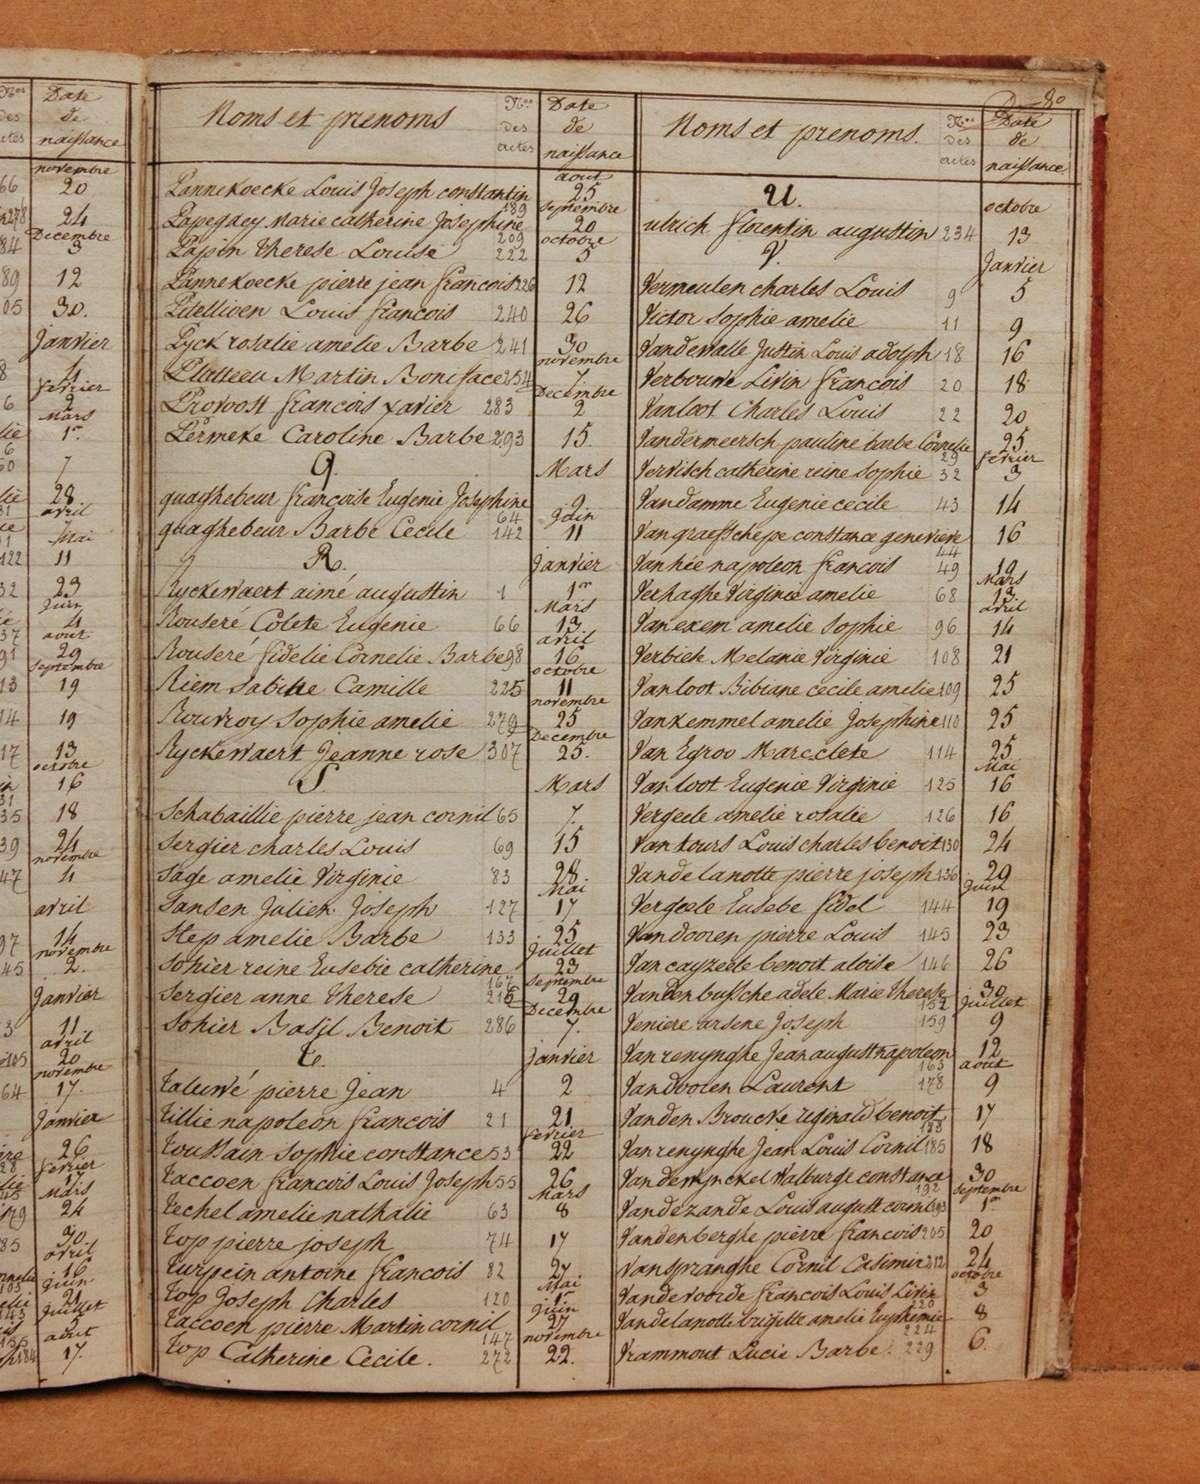 Nos Date
des de
actes naissance
novembre
66 20
278 24
Decembre
84 3
89 12
05 30.
Janvier
8 4
fevrier
6 2
Mars
lie 1er
6
60 7
lie 28.
31 avril
7
Mai
122 11
32 23
Juin
ie 4
37 aout
91 29
septembre
13 19
14 19
17 13
octobre
16
31
35 18
39 24
novembre
47 4
avril
97 14
novembre
45 2.
Janvier
3 11
avril
105 20
novembre
64 17.
Janvier
26
28 fevrier
45 Mars
179 24
85 30
avril
16
103 juin
21
143 Juillet
155 aout
184 17.
Noms et prenoms Nos des actes Date de naissance
aout
Pannekoecke Louis Joseph constantin 189 25
septembre
Papegaey Marie catherine Josephine 209 20
octobre
Papin therese Louise 222 5
Pannekoecke pierre jean francois 226 12
Pitellioen Louis francois 240 26
Pyck rosalie amelie Barbe 241 30
novembre
Martin Boniface 254 7
Decembre
Provoost francois xavier 283 2
Permeke Caroline Barbe 293 15.
Q. Mars
quaghebeur francoise Eugenie Josephine 64 9
Juin
quaghebeur Barbe Cecile 142 11
R. janvier
Ryckewaert aimé augustin 1 1er
Mars
Rouseré Colete Eugenie 66 13
avril
Rouseré fidelie Cornelie Barbe 98 16
octobre
Riem Sabine Camille 225 11
novembre
Rouvroy Sophie amelie 279 25
Decembre
Ryckewaert Jeanne rose 307 25.
S. Mars
Schabaillie pierre jean cornil 65 7.
Sergier charles Louis 69 15
Sage amelie Virginie 83 28.
Mai
Jansen Julien Joseph 127 17
Step amelie Barbe 133 25
Juillet
Sohier reine Eusebie catherine 23
septembre
Sergier anne therese 216 29
Decembre
Sohier Basil Benoit 286 7.
T. janvier
Taluwé pierre Jean 4 2
Tillie napoleon francois 21 21
fevrier
Toussain Sophie constance 53 22
Taccoen francois Louis Joseph 55 26
Mars
Techel amelie nathalie 63 8
Top pierre joseph 74 17
Turpein antoine francois 82 27
Mai
Top Joseph Charles 120 1er
Juin
Taccoen pierre Martin cornil 147 27
novembre
Top Catherine Cecile. 272 22.
80
Noms et prenoms. Nos des actes Date de naissance
U. octobre
ulrich florentin augustin 234 13
V. Janvier
Vermeulen charles Louis 9 5
Victor Sophie amelie 11 9
Vandewalle Justin Louis adolph 18 16
Verbouwe Livin francois 20 18
Vanloot Charles Louis 22 20
Vandermeersch pauline barbe Cornelie 29 25
fevrier
Vervisch catherine reine Sophie 32 3
Vandamme Eugenie cecile 43 14
Vangraefschepe constance genevieve 44 16
Vanhée napoleon francois 49 19
Mars
Verhaghe Virginie amelie 68 13
avril
Vanexem amelie Sophie 96 14
Verbieke Melanie Virginie 108 21
Vanloot Bibiane cecile amelie 109 25
Vankemmel amelie Josephine 110 25
Van Egroo Marc clete 114 25
Mai
Vanloot Eugenie Virginie 125 16
Vergeele amelie rosalie 126 16
Vantours Louis charles benoit 130 24
Vandelanotte pierre joseph 136 29
Juin
Vergeele Eusebe fidel 144 19
Vandooren pierre Louis 145 23
Van cayzeele benoit aloise 146 26
Vandenbussche adele Marie therese 152 30
Juillet
Veniere arsene Joseph 159 9
Vanrenynghe Jean august napoleon 163 12
aout
Vandooren Laurent 178 9
Vanden Broucke reginald benoit 183 17
Vanrenynghe Jean Louis Cornil 185 18
Vandewynckel Walburge constance 192 30
septembre
Vandezande Louis august cornil 193 1er
Vandenberghe pierre francois 205 20
Van spranghe Cornil Casimir 212 24
octobre
Vandevoorde francois Louis Livin 220 3
Vandelanotte brigitte amelie Euphemie 224 8
Vrammout Lucie Barbe. 229 6.